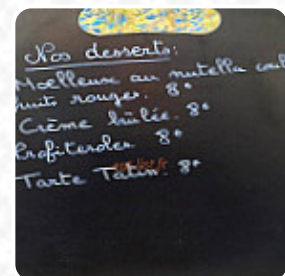 Nos desserts:
Moelleux au nutella coul
ruits rouges. 8€
Crème brûlée. 8€
Profiteroles 8€
Tarte Tatin. 8€